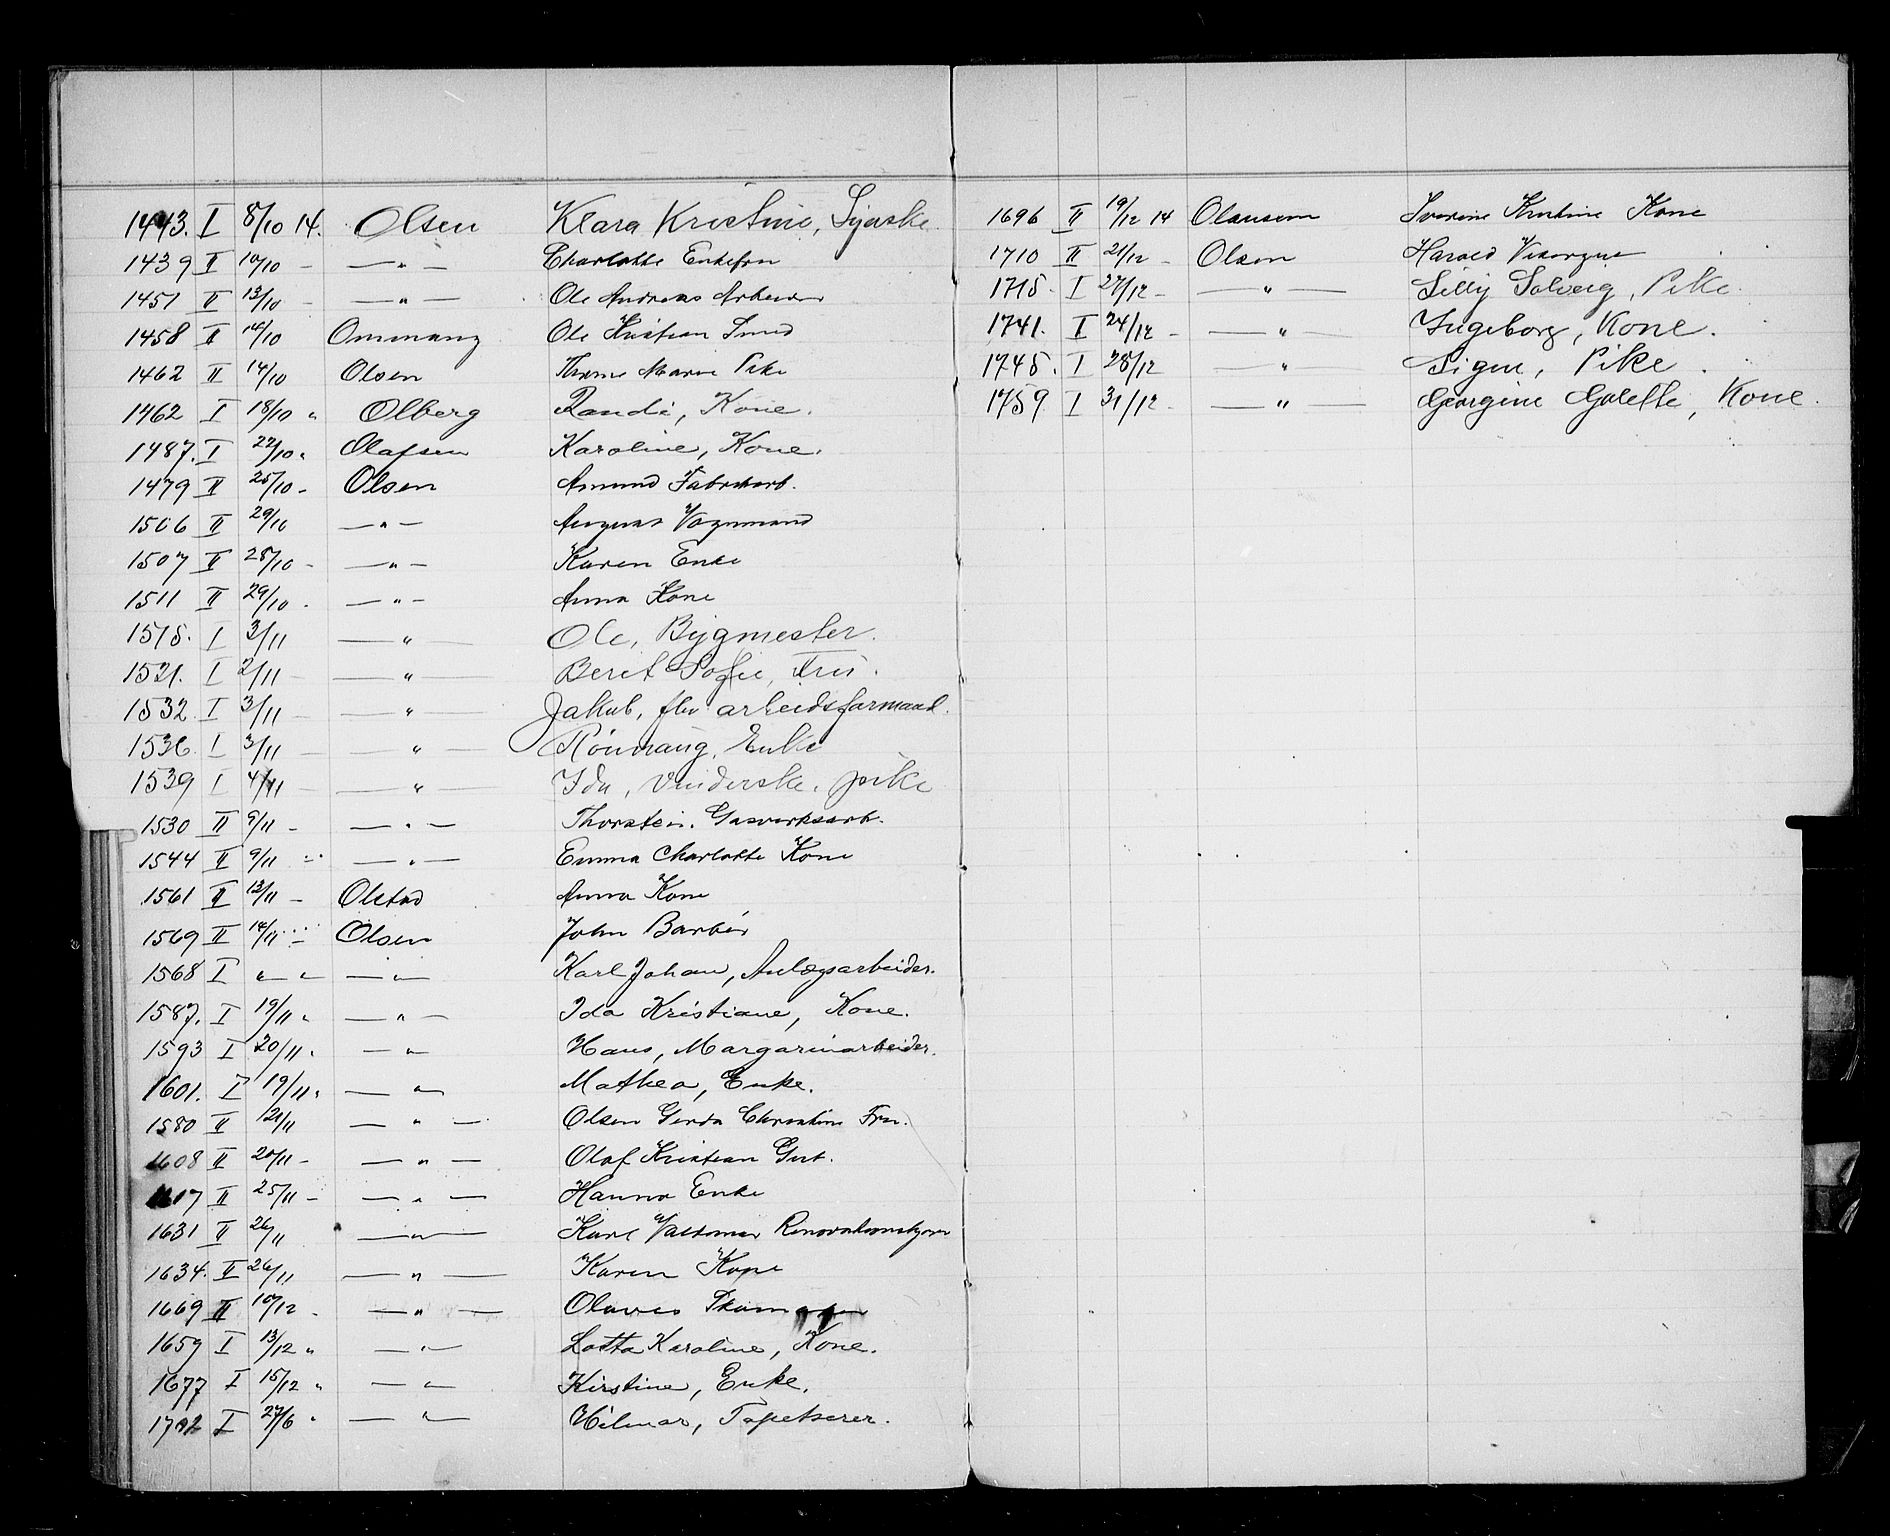 1443. I 8/10 14. Olsen Klara Kristine, Syerske.
1439 II 10/10 - —„— Charlotte Enkefru
1451 II 13/10 - —„— Ole Andreas Arbeider
1458 II 14/10 Ommang Ole Kristian Smed
1462 II 14/10 Olsen Marie Pike
1462 I 18/10 „ Olberg Randi, Kone.
1487. I 22/10 „ Olafsen Karoline, Kone.
1479 II 25/10 - Olsen Amund Fabrikarb.
1506 II 29/10 —„— Vognmand
1507 II 28/10 - —„— Karen Enke
1511 II 29/10 - —„— Anna Kone
1515. I 3/11 —„— Ole, Bygmester.
1521. I 2/11 —„— Beret Sofie, Fru.
1532. I 3/11 — —„— Jakob, flv arbeidsformand.
1536. I 3/11 — —„— Rønnaug, Enke
1539 I 4/11 — —„— Ida, Vinderske, pike
1530 II 9/11 - —„— Thorstein. Gasverksarb.
1544 II 9/11 - —„— Emma Charlotte Kone
1561 II 13/11 - Olstad Anna Kone
1569 II 14/11 - Olsen John Barbér
1568 I „ — „ —„— Karl Johan, Anlægsarbeider.
1587. I 19/11 „ —„— Ida Kristiane, Kone.
1593 I 20/11 „ —„— Hans, Margarinarbeider.
1601. I 19/11 „ —„— Mathea, Enke.
1580 II 21/11 —„— Olsen Gerda Christine Fru.
1608 II 20/11 - —„— Olaf Kristian Gut.
1617 II 25/11 - —„— Hanna Enke
1631 II 26/11 —„— Karl Valdemar Renovationskjører
1634. II 26/11 —„— Karen Kone
1669 II 10/12 - —„— Olaves Skomager
1659 I 13/12 „ —„— Lotta Karoline, Kone.
1677 I 15/12 „ —„— Kirstine, Enke.
1702 I 27/6 „ —„— Hilmar, Tapetserer.
1696 II 19/12 14 Olaussen Kristine Kone
1710 II 21/12 - Olsen Harald Visergut
1715. I 27/12 - —„— Lilly Solveig, Pike.
1741. I 24/12 - —„— Ingeborg, Kone.
1745. I 28/12 —„— Signe, Pike.
1759 I 31/12 - —„— Georgine Golette, Kone.